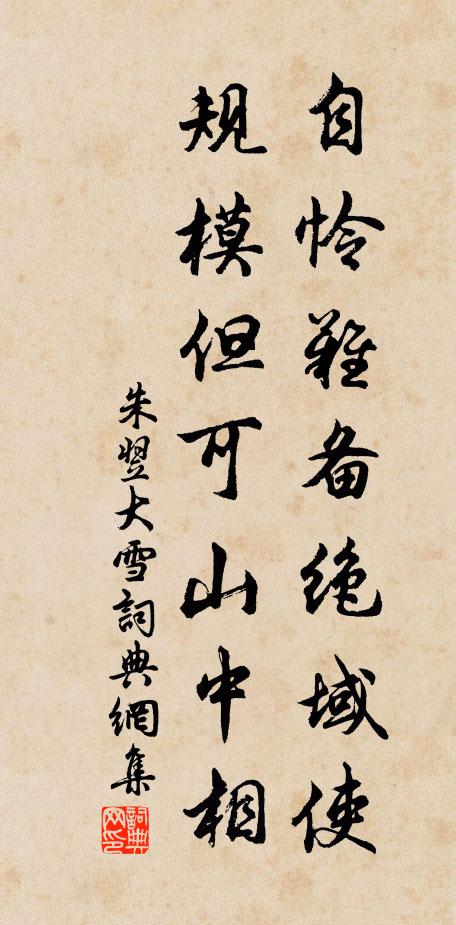 自怜难备绝域使
规模但可山中相
朱翌大雪詞典網集
詞典網印